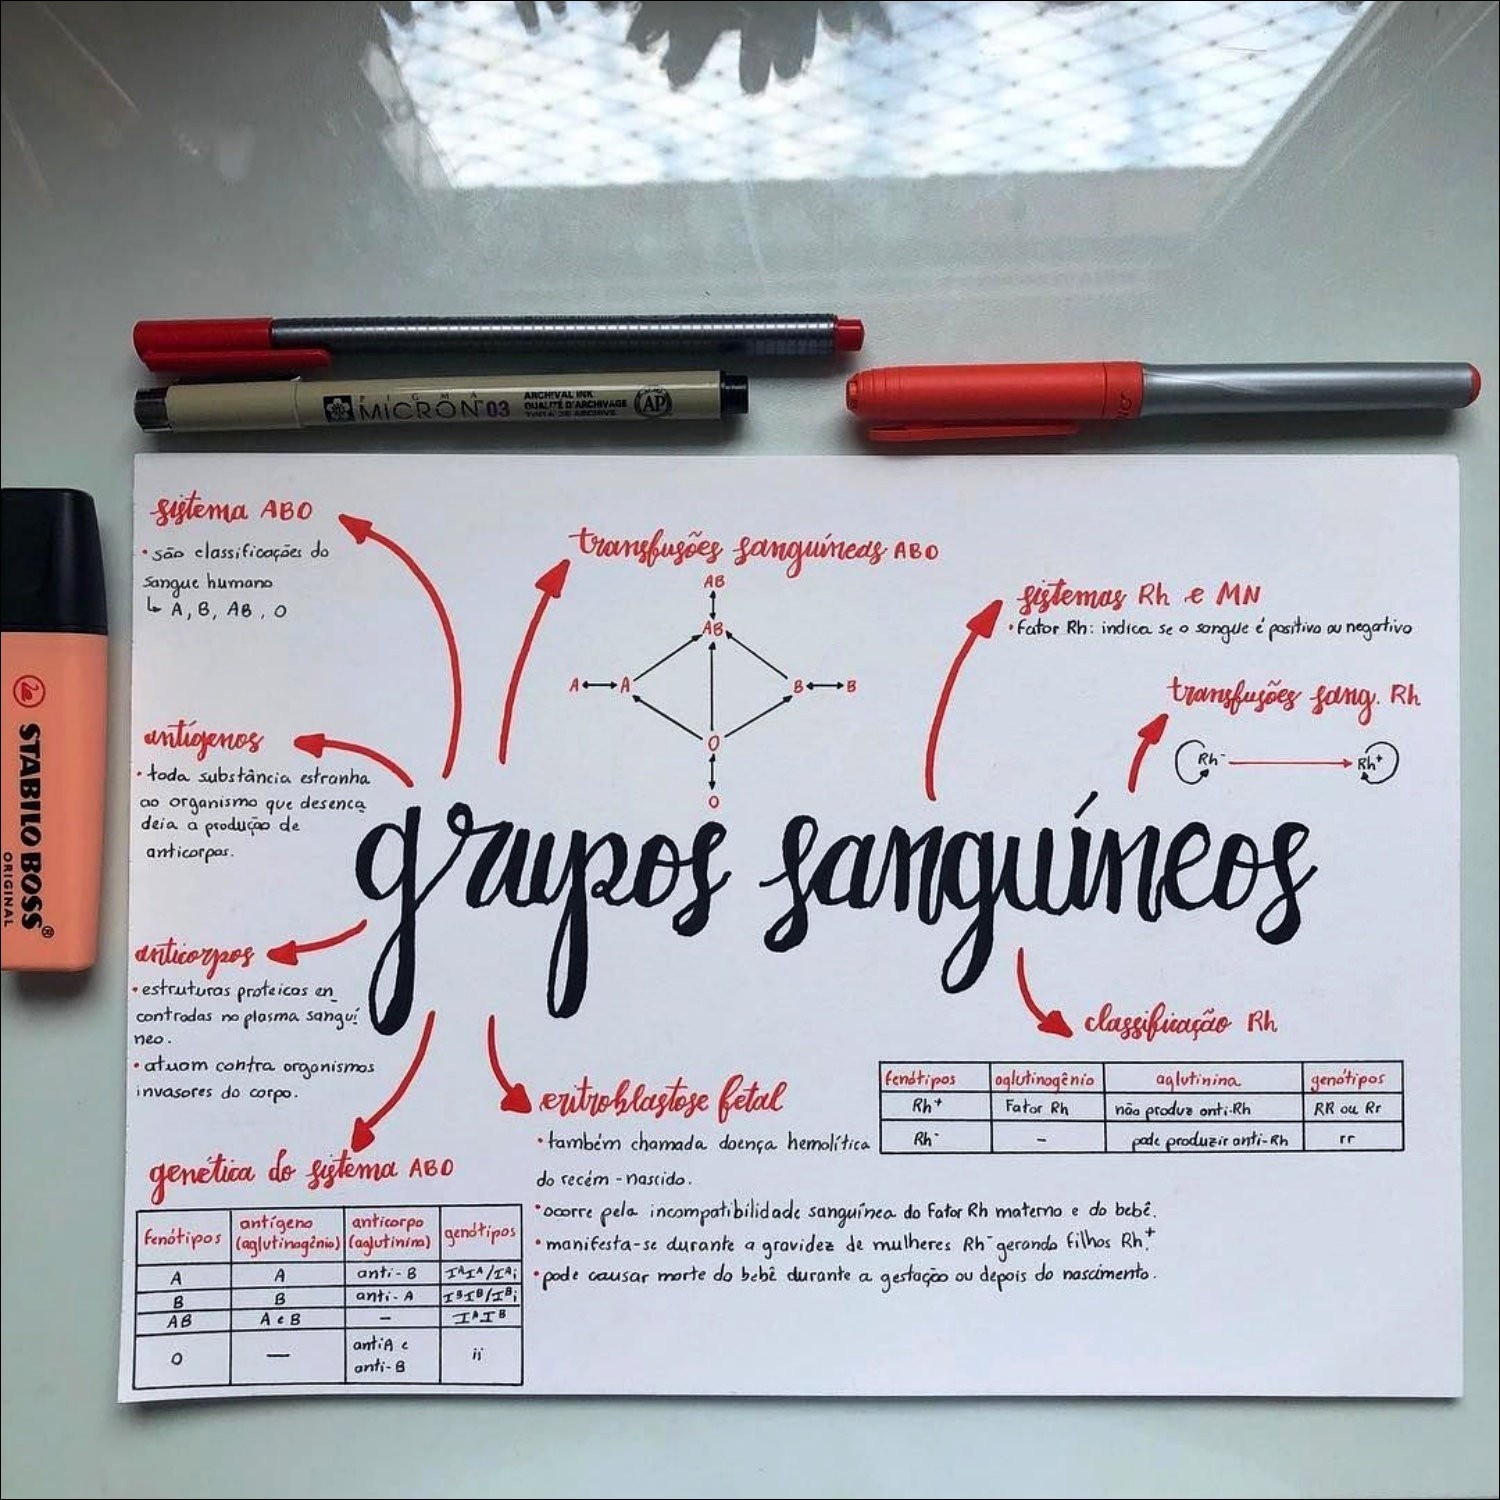 PIGMA
MICRON 03
ARCHIVAL INK
QUALITÉ D'ARCHIVAGE
TINTA DE ARCHIVE
AP
STABILO BOSS®
ORIGINAL
sistema ABO
• são classificações do
sangue humano
↳ A, B, AB, O
transfusões sanguíneas ABO
AB
AB
A ↔ A
B ↔ B
O
O
sistemas Rh e MN
• Fator Rh: indica se o sangue é positivo ou negativo
transfusões sang. Rh
Rh⁻ → Rh⁺
antígenos
• toda substância estranha
ao organismo que desenca
deia a produção de
anticorpos.
grupos sanguíneos
anticorpos
• estruturas proteicas en_
contradas no plasma sanguí
neo.
• atuam contra organismos
invasores do corpo.
classificação Rh
fenótipos aglutinogênio aglutinina genótipos
Rh⁺ Fator Rh não produz anti-Rh RR ou Rr
Rh⁻ – pode produzir anti-Rh rr
eritroblastose fetal
• também chamada doença hemolítica
do recém-nascido.
• ocorre pela incompatibilidade sanguínea do Fator Rh materno e do bebê.
• manifesta-se durante a gravidez de mulheres Rh⁻ gerando filhos Rh⁺.
• pode causar morte do bebê durante a gestação ou depois do nascimento.
genética do sistema ABO
fenótipos antígeno (aglutinogênio) anticorpo (aglutinina) genótipos
A A anti-B IᴬIᴬ/Iᴬi
B B anti-A IᴮIᴮ/Iᴮi
AB A e B – IᴬIᴮ
O — anti A e
anti-B ii